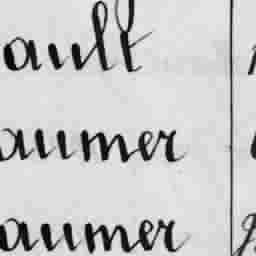 ault
aumer
aumer